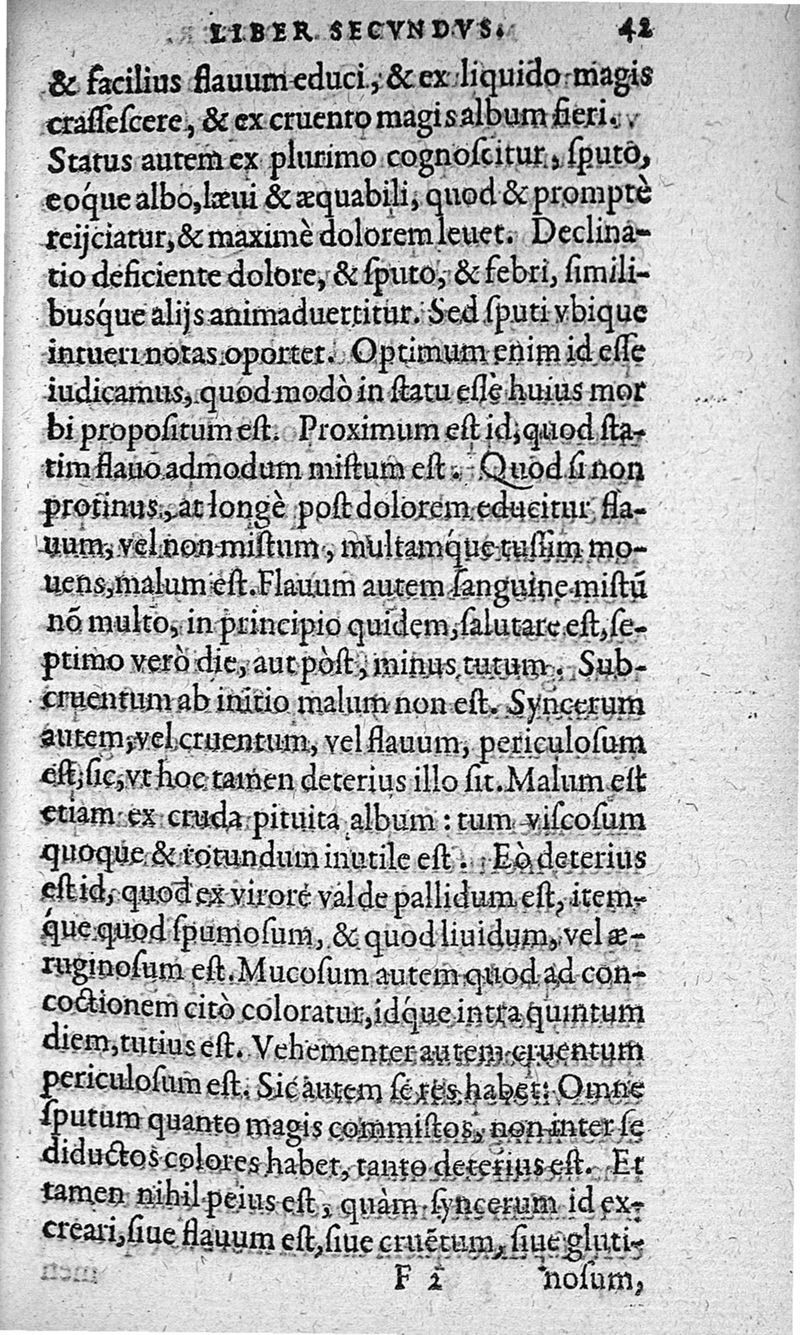 LIBER SECVNDVS. 42
& facilius flauum educi, & ex liquido magis
crassescere, & ex cruento magis album fieri.
Status autem ex plurimo cognoscitur, sputo,
eoq́ue albo, læui & æquabili, quod & promptè
reijciatur, & maximè dolorem leuet. Declina-
tio deficiente dolore, & sputo, & febri, simili-
busq́ue alijs animaduertitur. Sed sputi vbique
intueri notas oportet. Optimum enim id esse
iudicamus, quod modò in statu essè huius mor
bi propositum est. Proximum est id, quod sta-
tim flauo admodum mistum est. Quod si non
protinus, at longè post dolorem educitur fla-
uum, vel non mistum, multamq́ue tussim mo-
uens, malum est. Flauum autem sanguine mistũ
nõ multo, in principio quidem, salutare est, se-
ptimo verò die, aut pòst, minus tutum. Sub-
cruentum ab initio malum non est. Syncerum
autem, vel cruentum, vel flauum, periculosum
est, sic, vt hoc tamen deterius illo sit. Malum est
etiam ex cruda pituita album: tum viscosum
quoque & rotundum inutile est. Eò deterius
est id, quod ex virore valde pallidum est, item-
q́ue quod spumosum, & quod liuidum, vel æ-
ruginosum est. Mucosum autem quod ad con-
coctionem citò coloratur, idq́ue intra quintum
diem, tutius est. Vehementer autem cruentum
periculosum est. Sic autem se res habet: Omne
sputum quanto magis commistos, non inter se
diductos colores habet, tanto deterius est. Et
tamen nihil peius est, quàm syncerum id ex-
creari, siue flauum est, siue cruẽtum, siue gluti-
F 2 nosum,